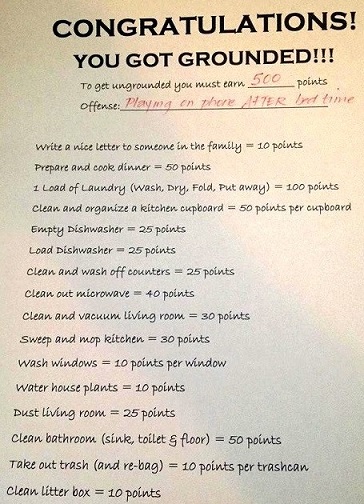 CONGRATULATIONS!
YOU GOT GROUNDED!!!
To get ungrounded you must earn 500 points
Offense: Playing on phone AFTER bed time
Write a nice letter to someone in the family = 10 points
Prepare and cook dinner = 50 points
1 Load of Laundry (Wash, Dry, Fold, Put away) = 100 points
Clean and organize a kitchen cupboard = 50 points per cupboard
Empty Dishwasher = 25 points
Load Dishwasher = 25 points
Clean and wash off counters = 25 points
Clean out microwave = 40 points
Clean and vacuum living room = 30 points
Sweep and mop kitchen = 30 points
Wash windows = 10 points per window
Water house plants = 10 points
Dust living room = 25 points
Clean bathroom (sink, toilet & floor) = 50 points
Take out trash (and re-bag) = 10 points per trashcan
Clean litter box = 10 points